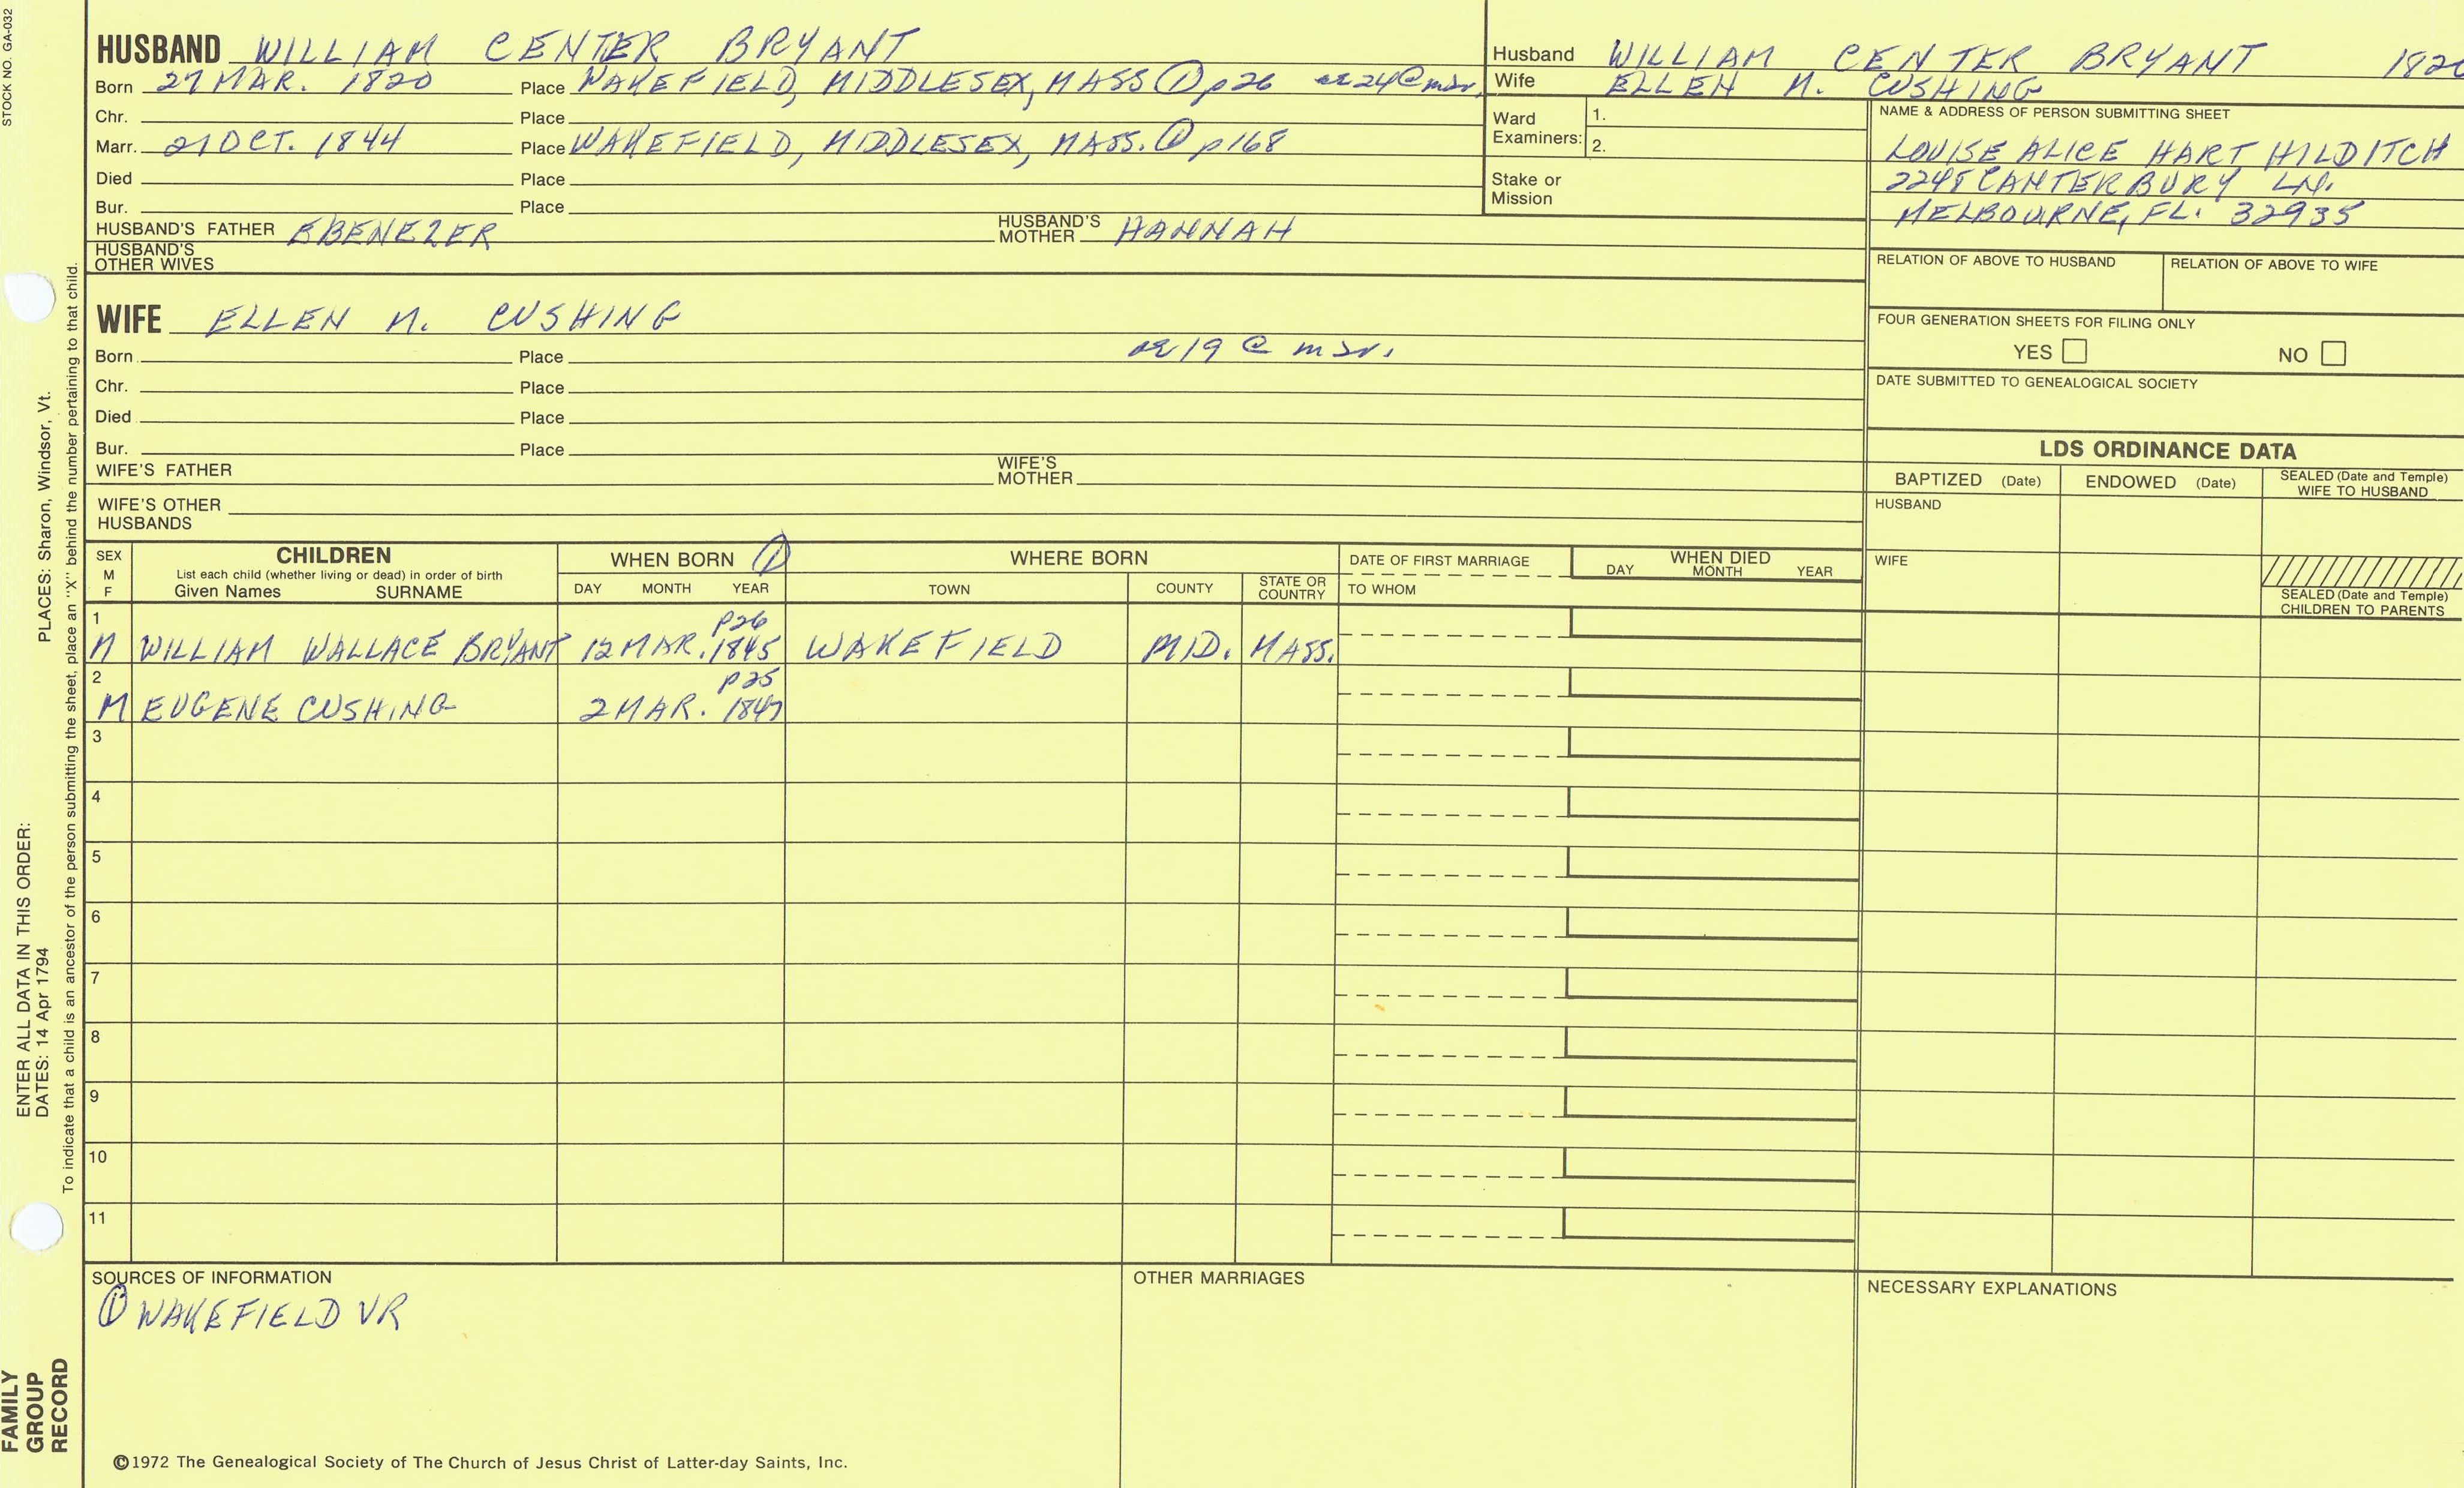 STOCK NO. GA-032
HUSBAND WILLIAM CENTER BRYANT
Born 27 MAR. 1820 Place WAKEFIELD, MIDDLESEX, MASS ① p26 ae 24 @ mar.
Chr. Place
Marr. 21 OCT. 1844 Place WAKEFIELD, MIDDLESEX, MASS. ① p168
Died Place
Bur. Place
HUSBAND'S FATHER EBENEZER HUSBAND'S MOTHER HANNAH
HUSBAND'S OTHER WIVES
Husband WILLIAM CENTER BRYANT 1820
Wife ELLEN M. CUSHING
Ward Examiners: 1.
2.
Stake or Mission
NAME & ADDRESS OF PERSON SUBMITTING SHEET
LOUISE ALICE HART HILDITCH
2248 CANTERBURY LN.
MELBOURNE, FL. 32935
RELATION OF ABOVE TO HUSBAND RELATION OF ABOVE TO WIFE
FOUR GENERATION SHEETS FOR FILING ONLY
YES NO
DATE SUBMITTED TO GENEALOGICAL SOCIETY
WIFE ELLEN M. CUSHING
Born Place ae 19 @ mar.
Chr. Place
Died Place
Bur. Place
WIFE'S FATHER WIFE'S MOTHER
WIFE'S OTHER HUSBANDS
LDS ORDINANCE DATA
BAPTIZED (Date) ENDOWED (Date) SEALED (Date and Temple) WIFE TO HUSBAND
HUSBAND
WIFE
SEALED (Date and Temple) CHILDREN TO PARENTS
SEX M F CHILDREN WHEN BORN ① WHERE BORN DATE OF FIRST MARRIAGE WHEN DIED
List each child (whether living or dead) in order of birth
Given Names SURNAME DAY MONTH YEAR TOWN COUNTY STATE OR COUNTRY TO WHOM DAY MONTH YEAR
1 p26
M WILLIAM WALLACE BRYANT 12 MAR. 1845 WAKEFIELD MID. MASS.
2 p25
M EUGENE CUSHING 2 MAR. 1847
3
4
5
6
7
8
9
10
11
SOURCES OF INFORMATION
① WAKEFIELD VR
OTHER MARRIAGES
NECESSARY EXPLANATIONS
©1972 The Genealogical Society of The Church of Jesus Christ of Latter-day Saints, Inc.
FAMILY
GROUP
RECORD
ENTER ALL DATA IN THIS ORDER:
DATES: 14 Apr 1794 PLACES: Sharon, Windsor, Vt.
To indicate that a child is an ancestor of the person submitting the sheet, place an "X" behind the number pertaining to that child.